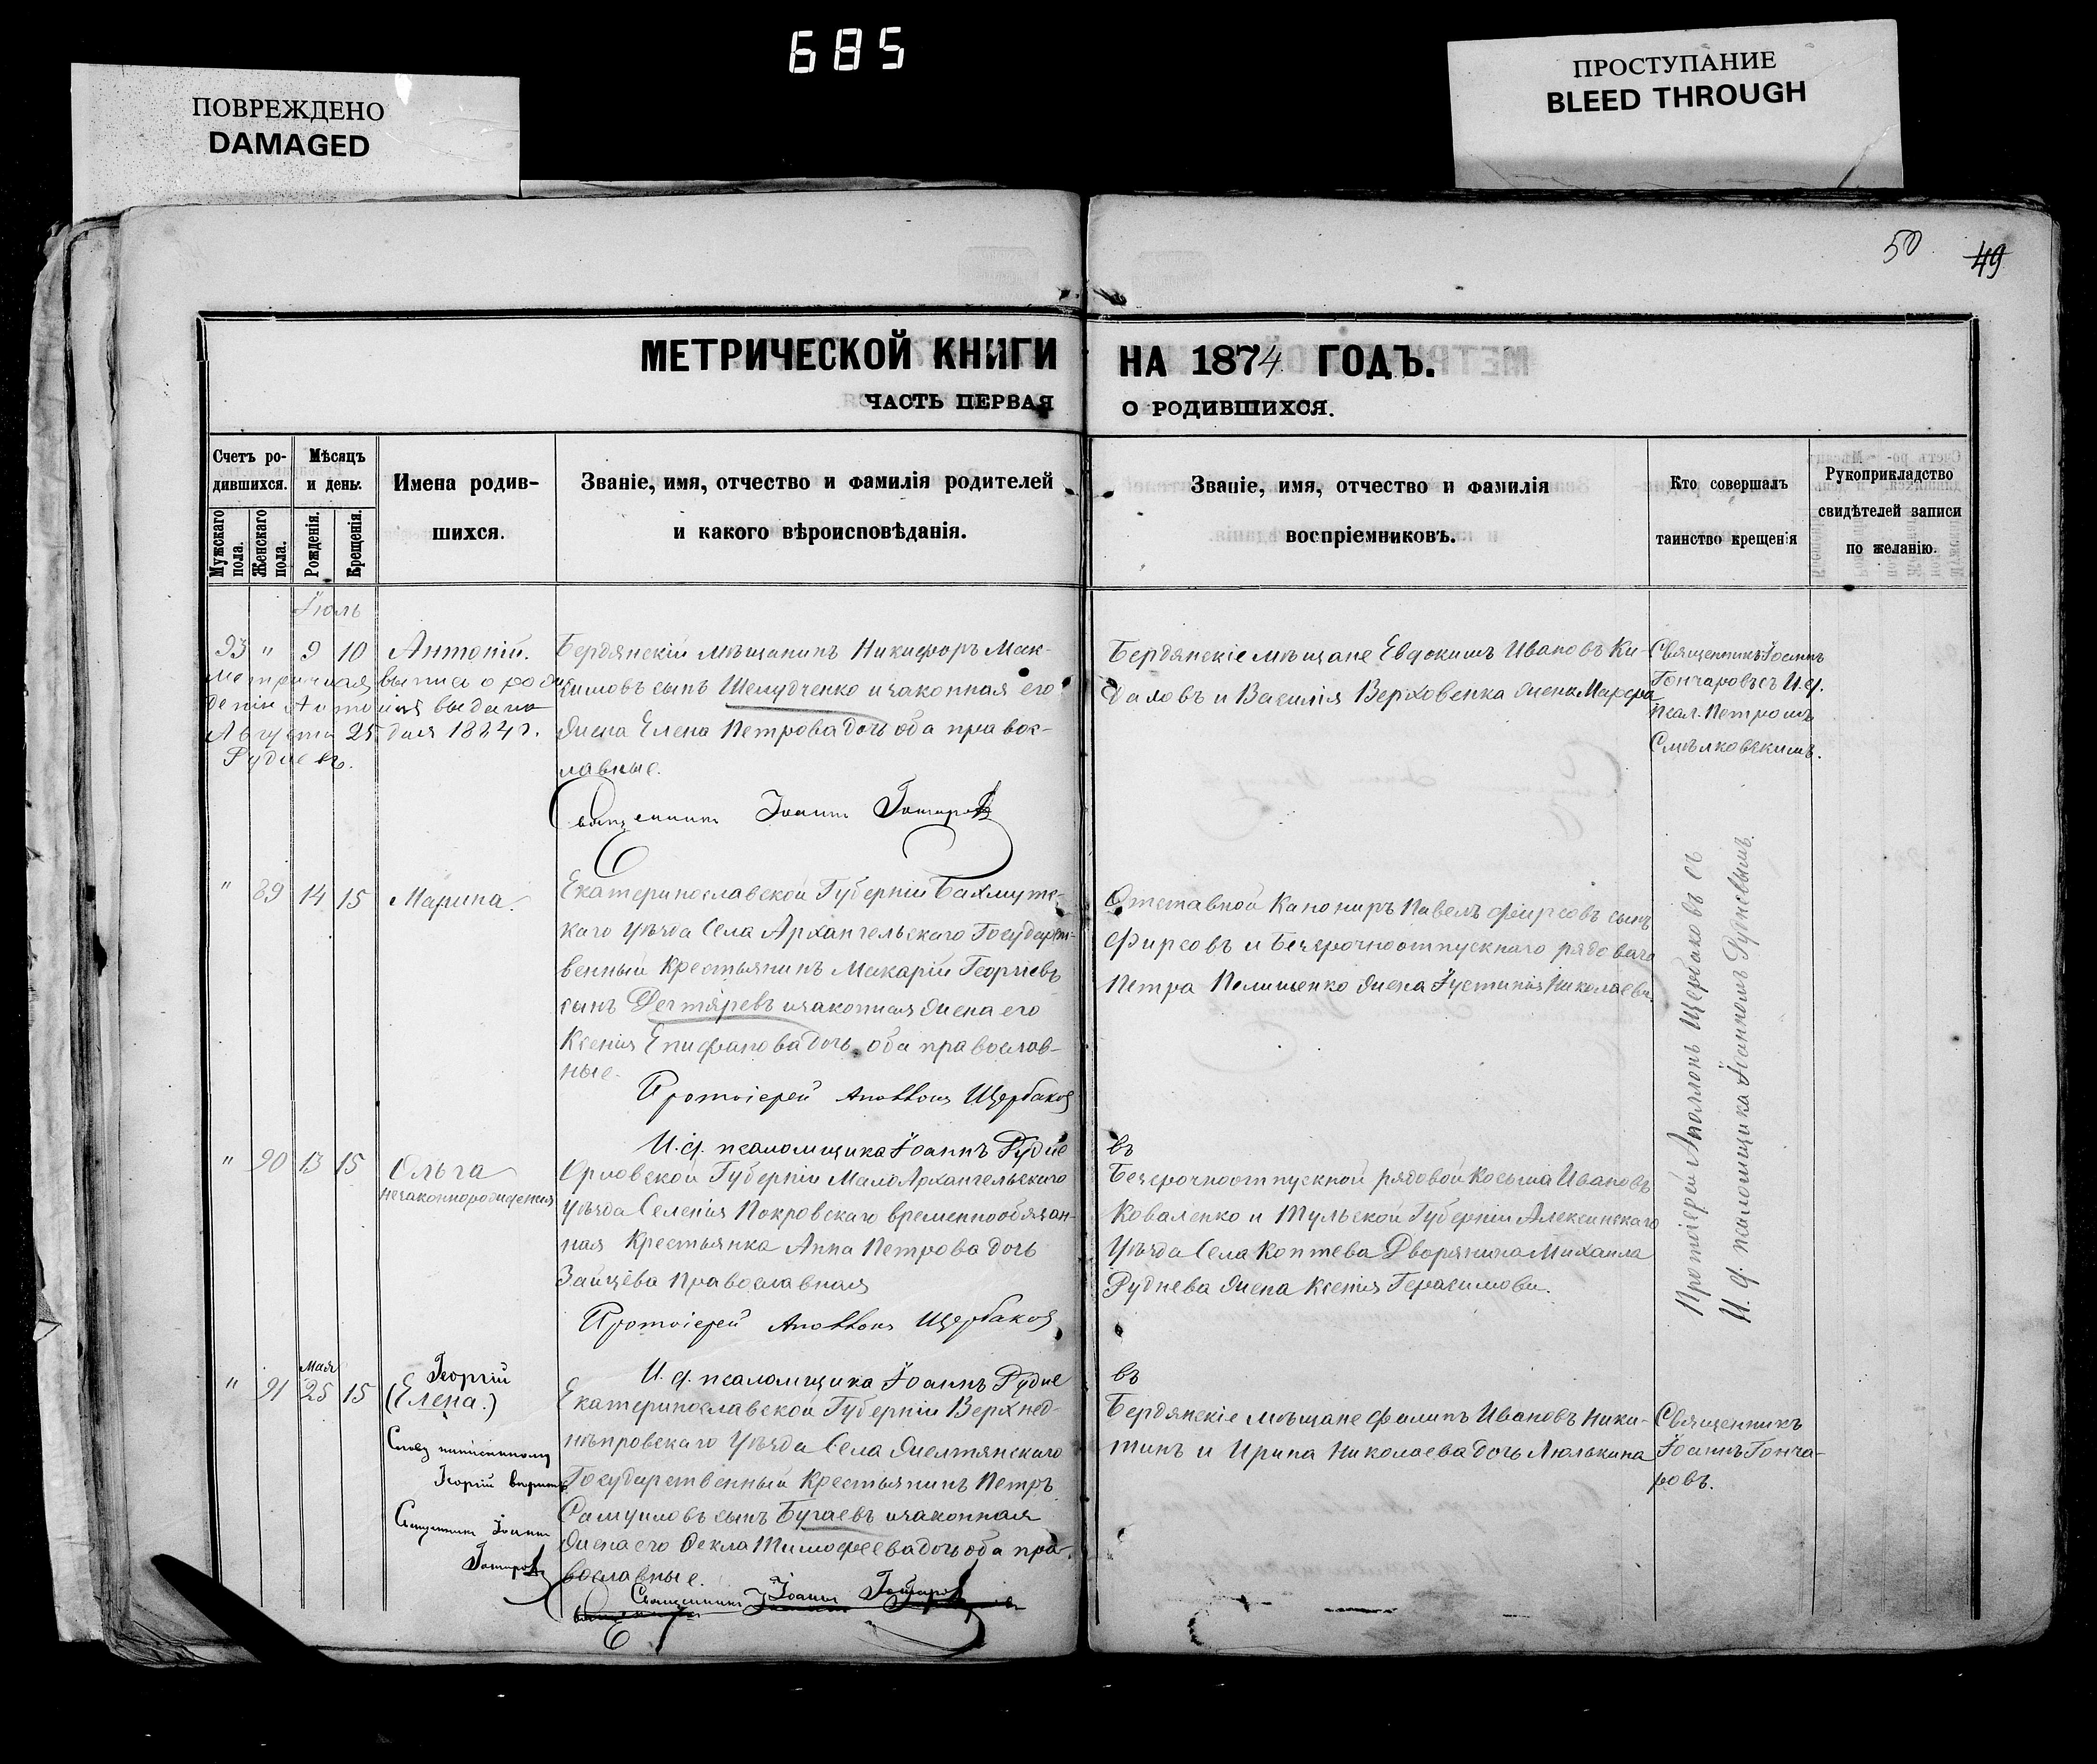 685
ПОВРЕЖДЕНО
DAMAGED
ПРОСТУПАНИЕ
BLEED THROUGH
50 49
МЕТРИЧЕСКОЙ КНИГИ НА 1874 ГОДЪ.
ЧАСТЬ ПЕРВАЯ О РОДИВШИХСЯ.
Счетъ ро-
дившихся.
Мужскаго пола.
Женскаго пола.
Мѣсяцъ
и день.
Рожденія.
Крещенія.
Имена родив-
шихся.
Званіе, имя, отчество и фамилія родителей
и какого вѣроисповѣданія.
Званіе, имя, отчество и фамилія
воспріемниковъ.
Кто совершалъ
таинство крещенія
Рукоприкладство
свидѣтелей записи
по желанію.
Іюль
93 " 9 10 Антоній.
Метричная выпись о рож
деніи Антонія выдана
Августа 25 дня 1884 г.
Рудневъ.
Бердянскій мѣщанинъ Никифоръ Мак-
симовъ сынъ Шелудченко и законная его
жена Елена Петрова дочь оба правос-
лавные.
Священникъ Іоаннъ Гончаровъ
Бердянскіе мѣщане Евдокимъ Ивановъ Ки-
даловъ и Василія Верховенка жена Марфа
Священникъ Іоаннъ
Гончаровъ съ И.д.
псал. Петромъ
Смѣлковскимъ.
" 89 14 15 Марина.
Екатеринославской Губерніи Бахмутс-
каго уѣзда Села Архангельскаго Государст-
венный Крестьянинъ Макарій Георгіевъ
сынъ Дегтяревъ и законная жена его
Ксенія Епифанова дочь оба православ-
ные.
Протоіерей Аполлонъ Щербаковъ
И. д. псаломщика Іоаннъ Рудневъ
Отставной Канониръ Павелъ Фирсовъ сынъ
Фирсовъ и Безсрочноотпускнаго рядоваго
Петра Полищенко жена Іустинія Николаева.
Протоіерей Аполлонъ Щербаковъ съ
И. д. псаломщика Іоанномъ Рудневымъ.
" 90 13 15 Ольга
незаконнорожденная
Орловской Губерніи МалоАрхангельскаго
уѣзда Селенія Покровскаго временнообязан-
ная Крестьянка Анна Петрова дочь
Зайцева Православная
Протоіерей Аполлонъ Щербаковъ
И. д. псаломщика Іоаннъ Рудневъ
Безсрочноотпускной рядовой Косьма Ивановъ
Коваленко и Тульской Губерніи Алексинскаго
Уѣзда Села Коптева Дворянина Михаила
Руднева жена Ксенія Герасимова.
" 91 Мая 25 15 Георгій
(Елена.)
Георгій вѣрно
Священникъ Іоаннъ
Гончаровъ
Екатеринославской Губерніи Верхнед-
нѣпровскаго Уѣзда Села Желтянскаго
Государственный Крестьянинъ Петръ
Самуиловъ сынъ Бугаевъ и законная
жена его Ѳекла Тимофеева дочь оба пра-
вославные.
Священникъ Іоаннъ Гончаровъ
Бердянскіе мѣщане Филипъ Ивановъ Ники-
тинъ и Ирина Николаева дочь Люлькина
Священникъ
Іоаннъ Гонча-
ровъ.